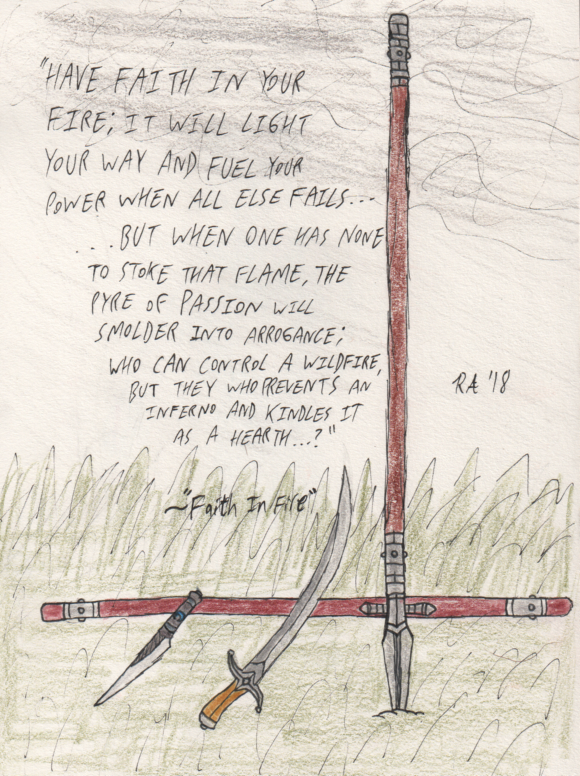 "HAVE FAITH IN YOUR
FIRE; IT WILL LIGHT
YOUR WAY AND FUEL YOUR
POWER WHEN ALL ELSE FAILS...
...BUT WHEN ONE HAS NONE
TO STOKE THAT FLAME, THE
PYRE OF PASSION WILL
SMOLDER INTO ARROGANCE;
WHO CAN CONTROL A WILDFIRE,
BUT THEY WHO PREVENTS AN
INFERNO AND KINDLES IT
AS A HEARTH...?"
RA '18
~"Faith In Fire"